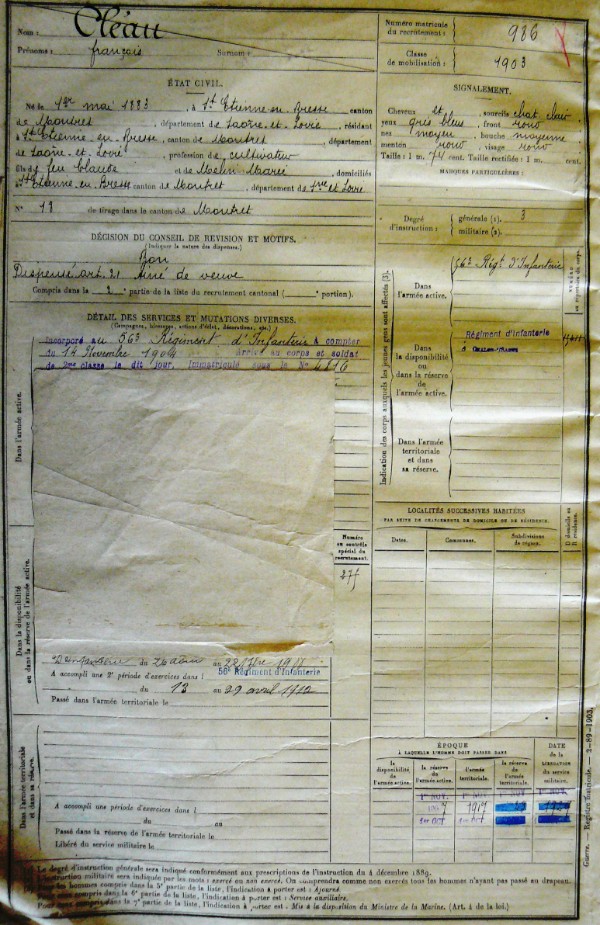 Nom : Cléau
Prénoms : françois Surnom :
Numéro matricule du recrutement : 986
Classe de mobilisation : 1903
ÉTAT CIVIL.
Né le 1er mai 1883, à St Etienne en Bresse canton
de Montret, département de Saône et Loire, résidant
à St Etienne en Bresse, canton de Montret département
de Saône et Loire, profession de cultivateur
fils de feu Claude et de Marie domiciliés
à St Etienne en Bresse canton de Montret, département de Sne et Loire
N° de tirage dans le canton de Montret
SIGNALEMENT.
Cheveux et sourcils chat clair
yeux gris bleus, front rond
nez moyen, bouche moyenne
menton rond, visage rond
Taille : 1 m. 74 cent. Taille rectifiée : 1 m. cent.
MARQUES PARTICULIÈRES :
Degré d'instruction : générale (1). 3
militaire (2).
DÉCISION DU CONSEIL DE REVISION ET MOTIFS.
(Indiquer la nature des dispenses.)
Bon
Dispensé art. 21 Ainé de veuve
Compris dans la 2e partie de la liste du recrutement cantonal ( portion).
DÉTAIL DES SERVICES ET MUTATIONS DIVERSES.
(Campagnes, blessures, actions d'éclat, décorations, etc.)
Incorporé au 56e Régiment d'Infanterie à compter
du 14 Novembre 1904 arrivé au corps et soldat
de 2me classe le dit jour. Immatriculé sous le N°
Dans l'armée active.
Dans la disponibilité ou dans la réserve de l'armée active.
au 1911
56e Régiment d'Infanterie
A accompli une 2e période d'exercices dans l
du 13 au 29 avril 1912
Passé dans l'armée territoriale le
Dans l'armée territoriale et dans sa réserve.
A accompli une période d'exercices dans l
du au
Passé dans la réserve de l'armée territoriale le
Libéré du service militaire le
Numéro au contrôle spécial du recrutement.
Indication des corps auxquels les jeunes gens sont affectés (3).
Dans l'armée active. 56e Régt d'Infanterie
Dans la disponibilité ou dans la réserve de l'armée active.
Régiment d'Infanterie
Dans l'armée territoriale et dans sa réserve.
LOCALITÉS SUCCESSIVES HABITÉES
PAR SUITE DE CHANGEMENTS DE DOMICILE OU DE RÉSIDENCE.
Dates. Communes. Subdivisions de région. D domicile ou R résidence.
ÉPOQUE
À LAQUELLE L'HOMME DOIT PASSER DANS
la disponibilité de l'armée active. la réserve de l'armée active. l'armée territoriale. la réserve de l'armée territoriale.
DATE de la LIBÉRATION du service militaire.
1er NOV.
1917
1er OCT
Guerre. — Registre matricule. — 2-89-1903.
Le degré d'instruction générale sera indiqué conformément aux prescriptions de l'instruction du 4 décembre 1889.
L'instruction militaire sera indiquée par les mots : exercé ou non exercé. On comprendra comme non exercés tous les hommes n'ayant pas passé au drapeau.
Pour les hommes compris dans la 5e partie de la liste, l'indication à porter est : Ajourné.
Pour ceux compris dans la 6e partie de la liste, l'indication à porter est : Service auxiliaire.
Pour ceux compris dans la 7e partie de la liste, l'indication à porter est : Mis à la disposition du Ministre de la Marine. (Art. 4 de la loi.)